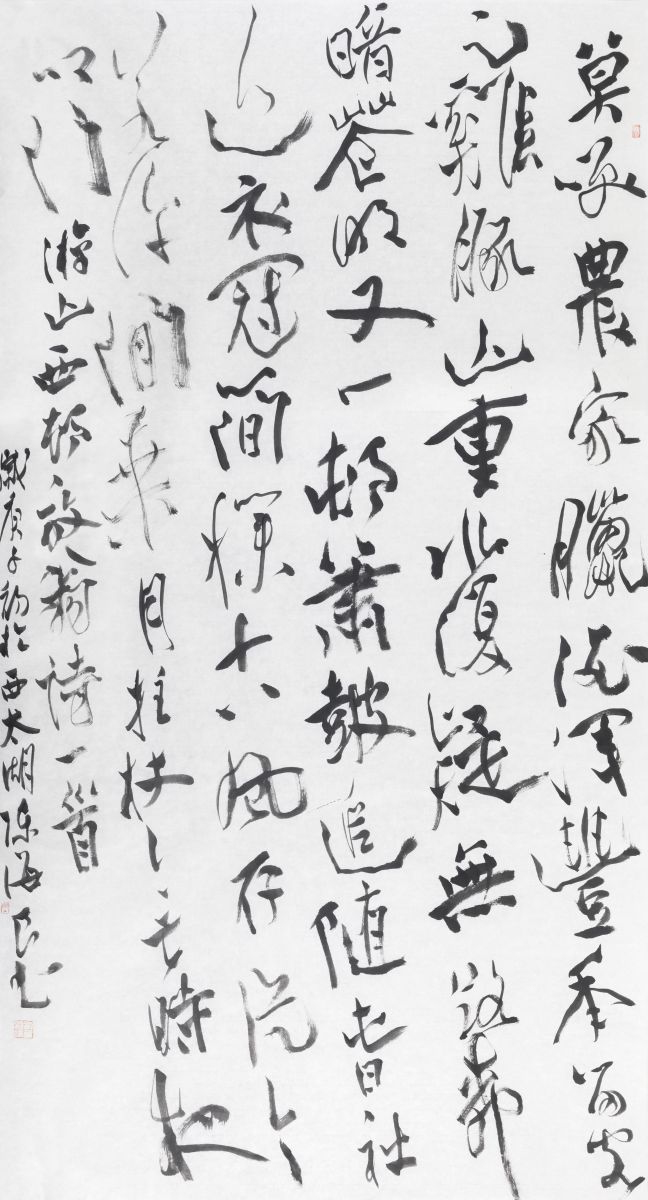 莫笑農家臘酒渾豐年留客
足雞豚山重水復疑無路柳
暗花明又一邨簫鼓追隨春社
近衣冠簡樸古風存從今
若許閒乘月拄杖無時夜
叩門 游山西村 放翁詩一首
歲庚子初於西太湖陳海良書